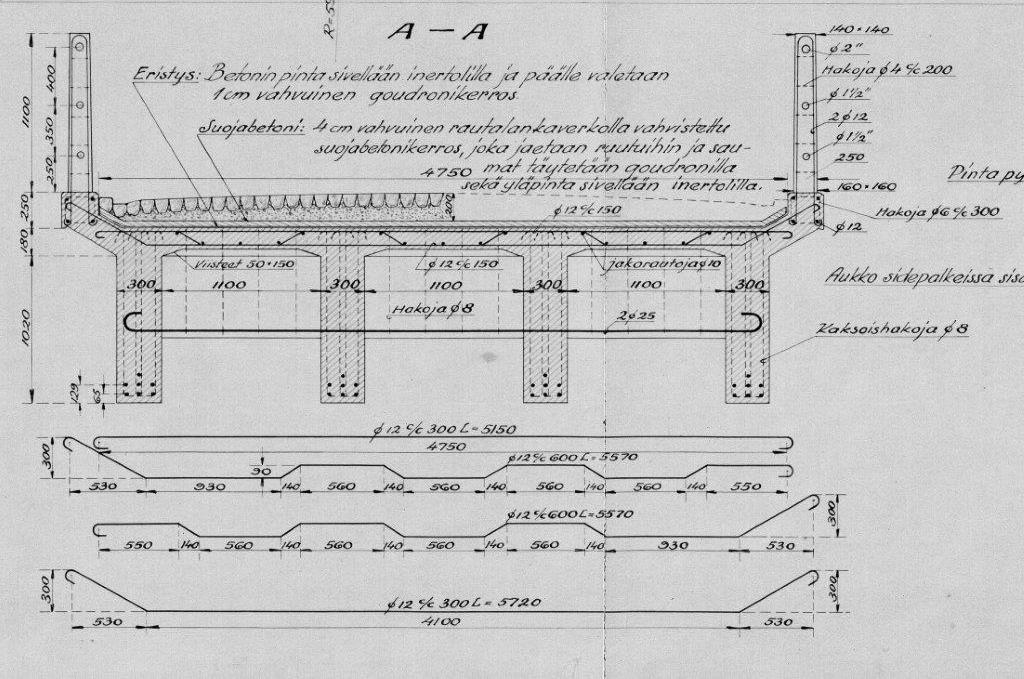 R=55
A — A
140×140
ϕ 2"
Hakoja ϕ 4 c/c 200
ϕ 1½"
2 ϕ 12
ϕ 1½"
250
160×160
Hakoja ϕ 6 c/c 300
ϕ 12
1100
400
350
250
250
180
1020
129
65
Eristys: Betonin pinta sivellään inertolilla ja päälle valetaan
1 cm vahvuinen goudronikerros
Suojabetoni: 4 cm vahvuinen rautalankaverkolla vahvistettu
suojabetonikerros, joka jaetaan ruutuihin ja sau-
mat täytetään goudronilla
sekä yläpinta sivellään inertolilla.
4750
200
Pinta py
ϕ 12 c/c 150
Viisteet 50×150
ϕ 12 c/c 150
jakorautoja ϕ 10
Aukko sidepalkeissa sisä
300 1100 300 1100 300 1100 300
Hakoja ϕ 8
2 ϕ 25
Kaksoishakoja ϕ 8
ϕ 12 c/c 300 L = 5150
4750
300
90
ϕ 12 c/c 600 L = 5570
530 930 140 560 140 560 140 560 140 560 140 550
ϕ 12 c/c 600 L = 5570
300
550 140 560 140 560 140 560 140 560 140 930 530
300
ϕ 12 c/c 300 L = 5720
300
530 4100 530